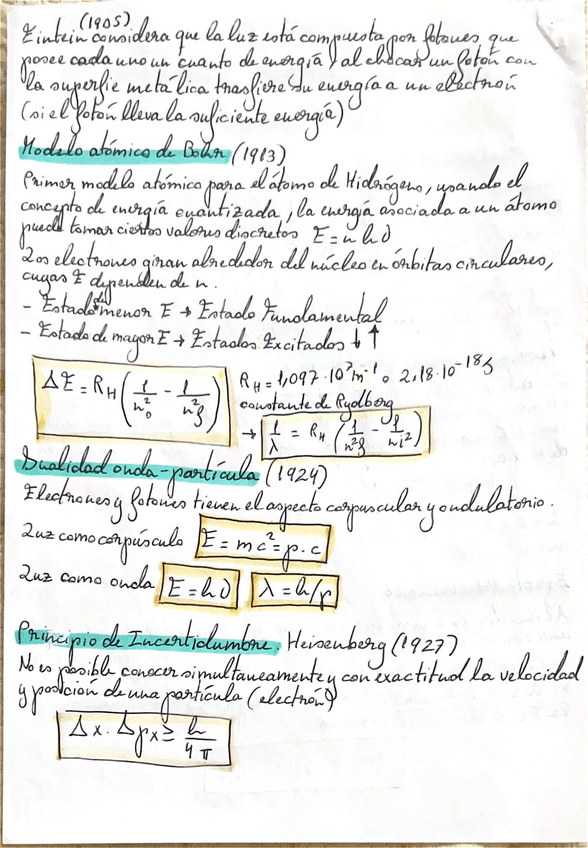 (1905)
Eintein considera que la luz está compuesta por fotones que
posee cada uno un cuanto de energía, al chocar un fotón con
la superfie metálica trasfiere su energía a un electrón
(si el fotón lleva la suficiente energía)
Modelo atómico de Bohr (1913)
Primer modelo atómico para el átomo de Hidrógeno, usando el
concepto de energía cuantizada, la energía asociada a un átomo
puede tomar ciertos valores discretos E = n h ν
Los electrones giran alrededor del núcleo en órbitas circulares,
cuyas E dependen de n.
- Estado de menor E → Estado Fundamental
- Estado de mayor E → Estados Excitados ↓ ↑
ΔE = R_H (1/n²₀ - 1/n²f) R_H = 1,097·10⁷ m⁻¹ o 2,18·10⁻¹⁸ J
constante de Rydberg
→ 1/λ = R_H (1/n²f - 1/ni²)
Dualidad onda-partícula (1924)
Electrones y fotones tienen el aspecto corpuscular y ondulatorio.
Luz como corpúsculo E = mc² = p.c
Luz como onda E = hν λ = h/p
Principio de Incertidumbre. Heisenberg (1927)
No es posible conocer simultaneamente y con exactitud la velocidad
y posición de una partícula (electrón)
Δx · Δpx ≥ h/4π